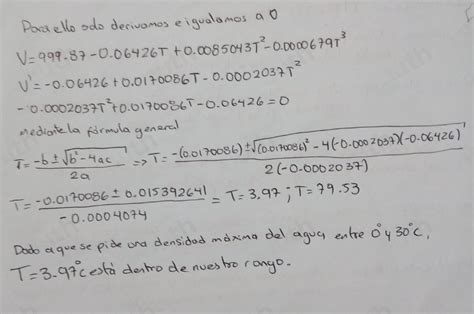 Para ello solo derivamos e igualamos a 0
V=999.87-0.06426T+0.0085043T²-0.0000679T³
V'=-0.06426+0.0170086T-0.0002037T²
-0.0002037T²+0.0170086T-0.06426=0
mediante la fórmula general
T=-b±√b²-4ac/2a => T=-(0.0170086)±√(0.0170086)²-4(-0.0002037)(-0.06426)/2(-0.0002037)
T=-0.0170086±0.015392641/-0.0004074=T=3.97;T=79.53
Dado a que se pide una densidad máxima del agua entre 0° y 30°C,
T=3.97°C está dentro de nuestro rango.